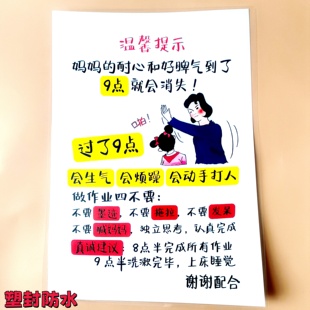 温馨提示
妈妈的耐心和好脾气到了
9点就会消失！
啪！
过了9点
会生气 会烦躁 会动手打人
做作业四不要：
不要 不要拖拉，不要发呆
不要喊妈妈，独立思考，认真完成
真诚建议：8点半完成所有作业
9点半洗漱完毕，上床睡觉
谢谢配合
塑封防水